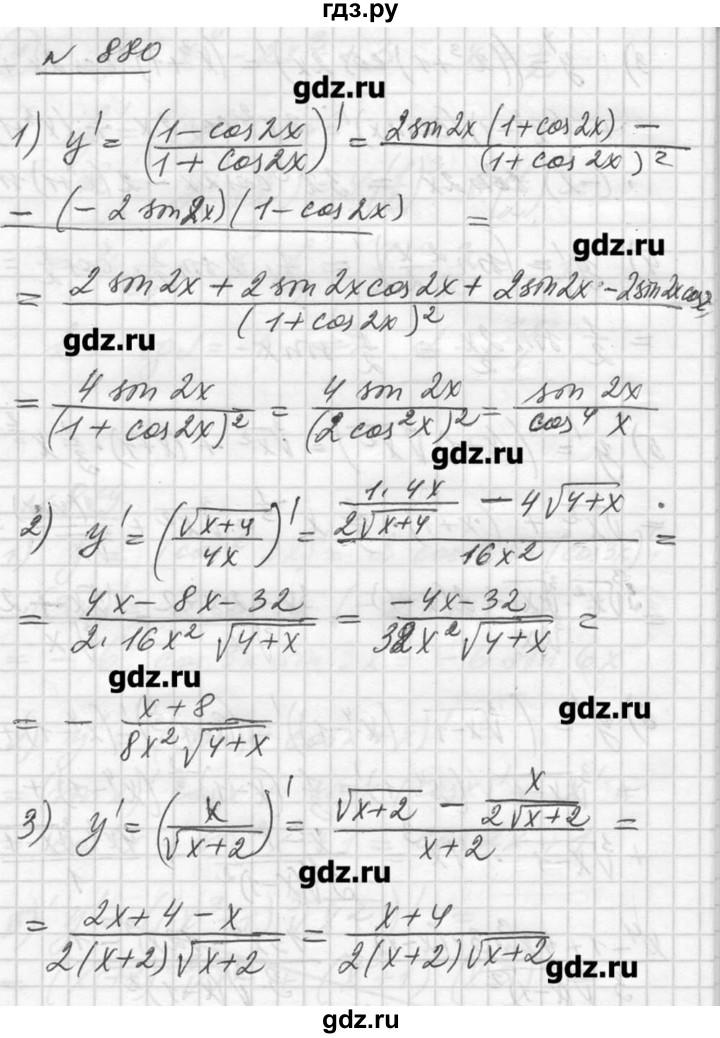 гдз.ру
№ 880
gdz.ru
1) y' = ((1 - cos2x)/(1 + cos2x))' = (2 sin 2x (1 + cos 2x) -)/((1 + cos 2x)²)
- (- 2 sin 2x)(1 - cos 2x) =
gdz.ru
= (2 sin 2x + 2 sin 2x cos 2x + 2 sin 2x - 2 sin 2x cos 2x)/((1 + cos 2x)²)
gdz.ru
= (4 sin 2x)/((1 + cos 2x)²) = (4 sin 2x)/((2 cos²x)²) = (sin 2x)/(cos⁴ x)
gdz.ru
2) y' = (√(x+4)/(4x))' = ((1·4x)/(2√(x+4)) - 4√(4+x))/(16x²) =
= (4x - 8x - 32)/(2·16x²√(4+x)) = (-4x - 32)/(32x²√(4+x)) =
gdz.ru
= - (x+8)/(8x²√(4+x))
gdz.ru
3) y' = (x/√(x+2))' = (√(x+2) - x/(2√(x+2)))/(x+2) =
gdz.ru
= (2x + 4 - x)/(2(x+2)√(x+2)) = (x+4)/(2(x+2)√(x+2))
gdz.ru
gdz.ru